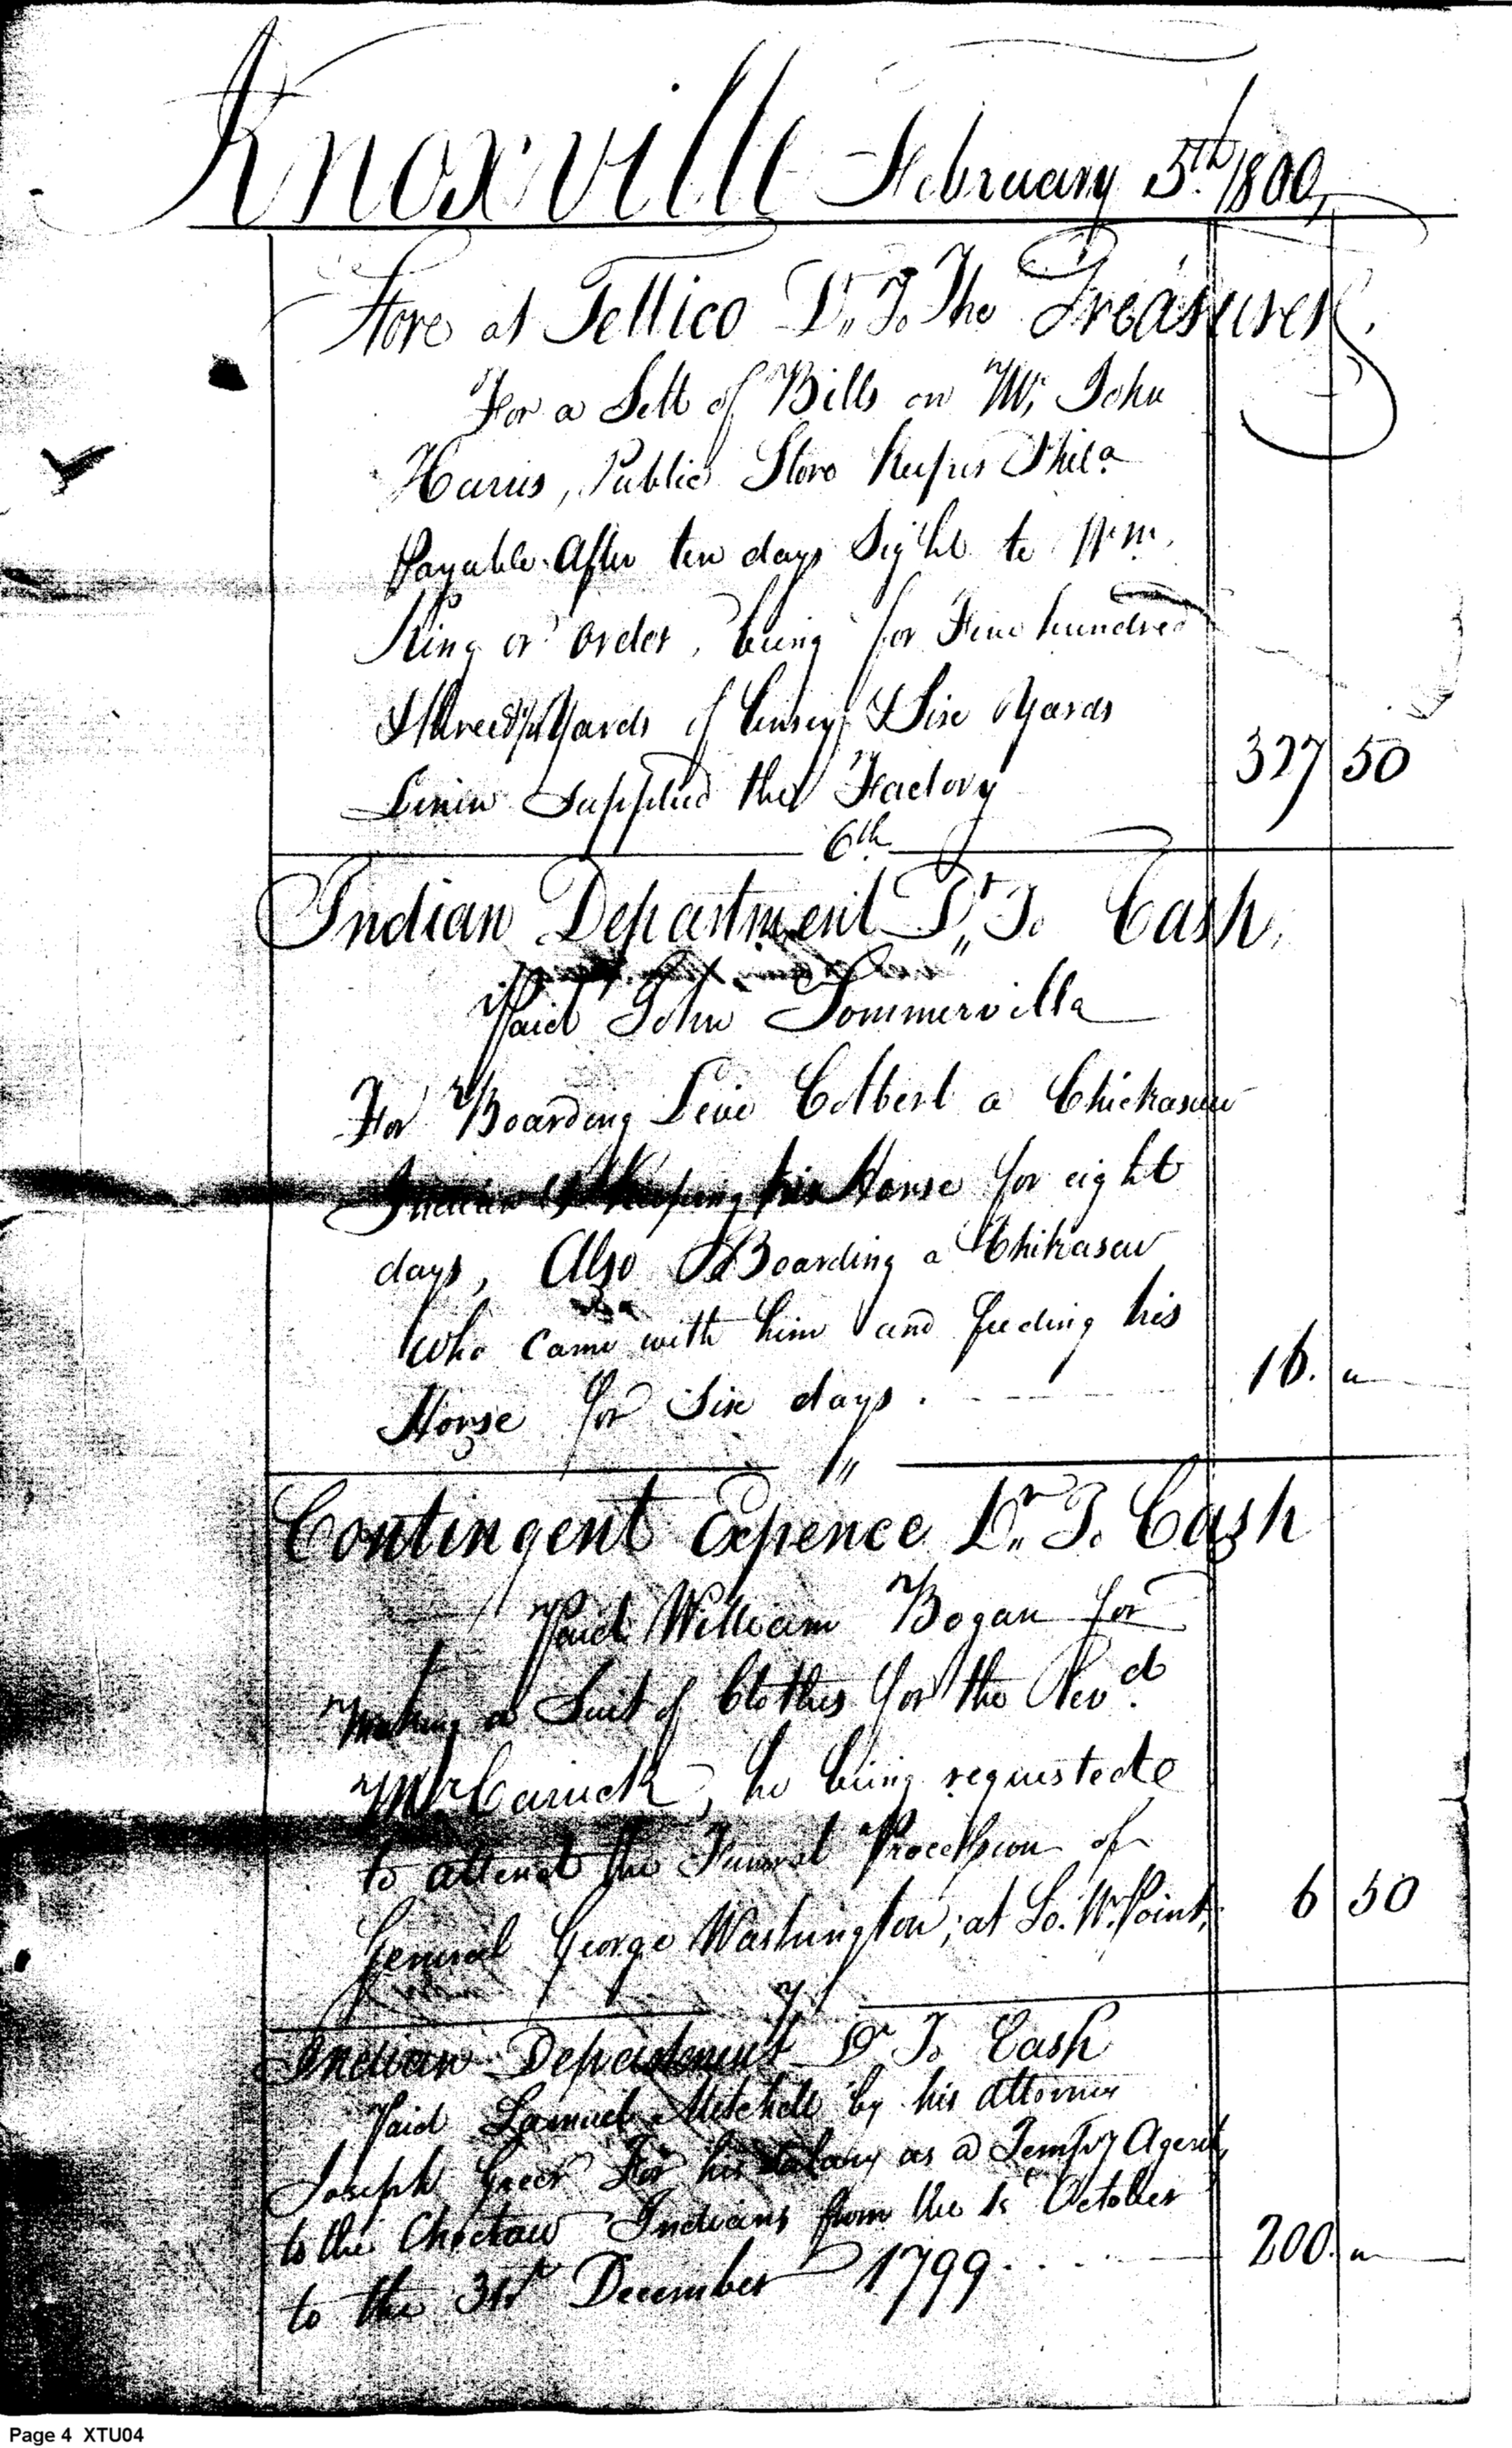 Knoxville February 5th 1800,
Store at Tellico Dr. To The Treasurer.
For a Sett of Bills on Mr. John
Harris, Public Store Keeper Phila
Payable After ten days Sight to Wm.
King or order, being for Five hundred
Yards of Linsey & Six Yards
Linin Supplied the Factory 327 50
6th
Indian Department Dr. To Cash,
Paid John Sommervilla
For Boarding Levi Colbert a Chickasaw
Indian & Keeping his Horse for eight
days, Also Boarding a Chikasaw
who came with him and feeding his
Horse for Six days. 16. "
"
Contingent Expence Dr. To Cash
Paid William Bogan for
making a Suit of Clothes for the Revd.
Mr Carrick, he being requested
to attend the Funeral Procession of
General George Washington, at So. W. Point, 6 50
7
Indian Department Dr To Cash
Paid Samuel Mitchell by his attorney
Joseph Greer For his Salary as a Tempy Agent,
to the Choctaw Indians from the 1st October
to the 31st December 1799 200. "
Page 4 XTU04